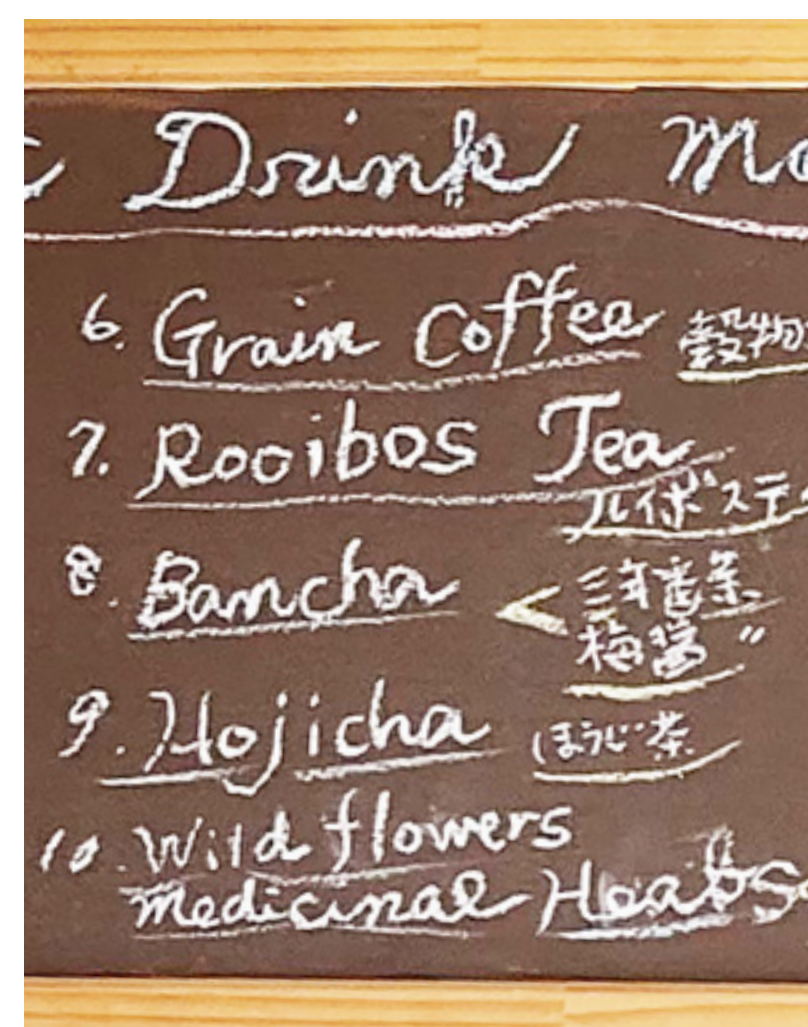 c Drink Me
6. Grain Coffee 穀物
7. Rooibos Tea
ルイボスティ
8. Bancha < 三年番茶
梅醤 〃
9. Hojicha ほうじ茶
10. Wild flowers
medicinal Heabs